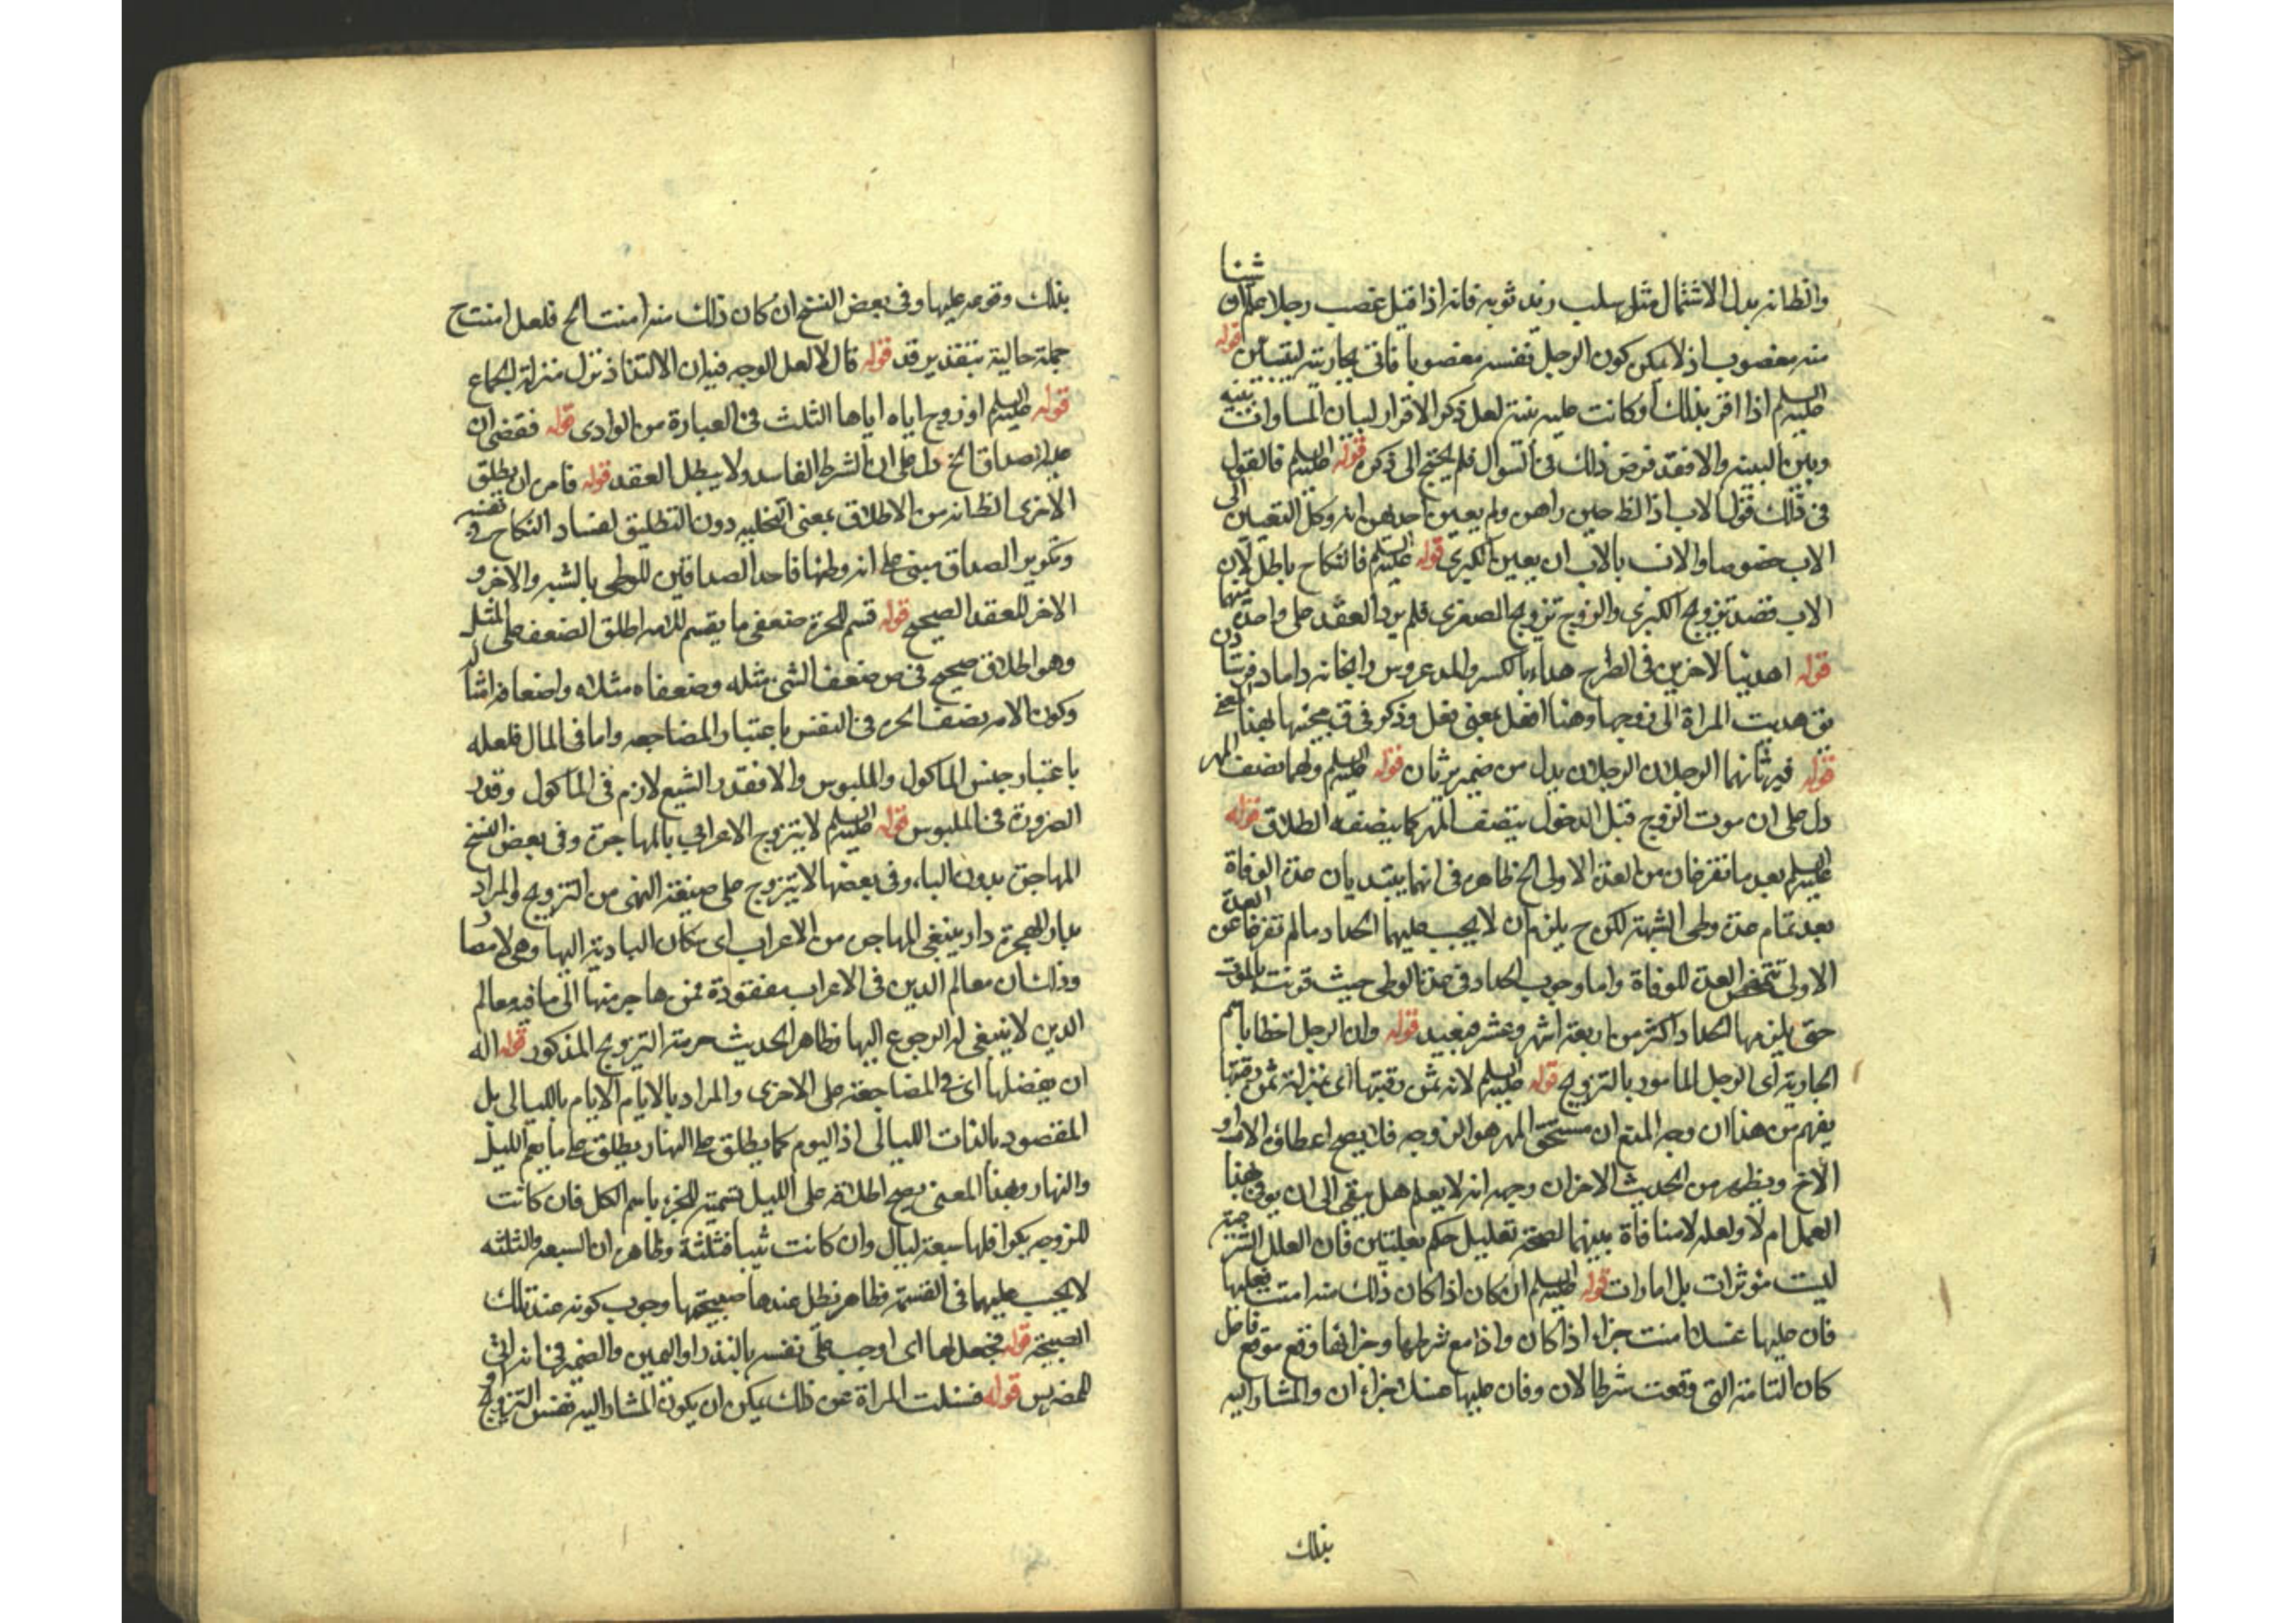 والظانه بدل الاشتمال مثل سلب زيد ثوبه فانه اذا قيل غصب رجلا علم ان شئا
منه مغصوب اذ لا يمكن كون الرجل نفسه مغصوبا فاتى بجاريته ليتبين قوله
عليه السلم اذا اقر بذلك او كانت عليه بينة لعل ذكر الاقرار لبيان المساوات بينه
وبين البينه والا فقد فرض ذلك في السؤال فلم يحتج الى ذكره قوله عليه السلم فالقول
في ذلك قول الاب اذ الظ حين راهن ولم يعين احدهن انه وكل التعيين الى
الاب خصوصا والانسب بالاب ان يعين الكبرى قوله عليه السلم فالنكاح باطل لان
الاب قصد تزويج الكبرى والزوج تزويج الصغرى فلم يرد العقد على واحدة منهما
قوله اهدينا لاخرين في الطرح هداء بالكسر والمد عروس را بخانه داماد فرستادن
يق هديت المراة الى زوجها وهنا افعل بمعنى فعل وذكر في ق مجيئها بهذا المعنى
قوله فيرثانهما الرجلان الرجلان بدل من ضمير يرثان قوله عليه السلم ولهما نصف المهر
دل على ان موت الزوج قبل الدخول ينصف المهر كما ينصفه الطلاق قوله
عليه السلم بعد ما تفرغان من العدة الاولى الخ ظاهره في انهما يبتديان عدة الوفاة
بعد تمام عدة وطى الشبهة لكن ح يلزم ان لا يجب عليهما الحداد ما لم تفرغا عن العدة
الاولى لتمحض العدة للوفاة واما وجوب الحداد في عدة الوطى حيث قرنت بالموت
حتى يلزمها الحداد اكثر من اربعة اشهر وعشر فبعيد قوله وان الرجل اخطا باسم
الجارية اى الرجل المامور بالتزويج قوله عليه السلم لانه ثمن رقبتها اى بمنزلة ثمن رقبتها
يفهم من هذا ان وجه المنع ان مستحق المهر هو الزوجه فلا يصح اعطاؤه الاب او
الاخ ويظهر من الحديث الاخر ان وجهه انه لا يعلم هل يبقى الى ان يوفى بهذا
العمل ام لا ولعله لا منافاة بينهما لصحة تعليل حكم بعلتين فان العلل الشرعية
ليست مؤثرات بل امارات قوله عليه السلم ان كان اذا كان ذلك منه امنت فعليها
فان عليها غسلا امنت جزاء اذا كان واذا مع شرطها وجزائها وقع موقع فاعل
كان التامة التى وقعت شرطا لان وفان عليها غسلا جزاء ان والمشار اليه
بذلك
بذلك وقوعه عليها وفي بعض النسخ ان كان ذلك منه امنت الخ فلعل امنت ح
جملة حالية بتقدير قد قوله قال لا لعل الوجه فيه ان الالتذاذ نزل منزلة الجماع
قوله عليه السلم او زوج اياه اياها الثلث في العبارة من الراوى قوله فقضى ان
عليه الصداق الخ دل على ان الشرط الفاسد ولا يبطل العقد قوله فامر ان يطلق
الاخرى الظانه من الاطلاق بمعنى التخليه دون التطليق لفساد النكاح في نفسه
وتكوير الصداق مبنى على انه وطئها فاحد الصداقين للوطى بالشبه والاخر و
الاخر للعقد الصحيح قوله قسم للحرة ضعفى ما يقسم للامه اطلق الضعف على المثل
وهو اطلاق صحيح في ص ضعف الشئ مثله وضعفاه مثلاه واضعافه امثاله
وكون الامر نصف الحره في النفس باعتبار المضاجعه واما في المال فلعله
باعتبار جنس الماكول والملبوس والا فقدر الشبع لازم في الماكول وقدر
الضرورة في الملبوس قوله عليه السلم لا يتزوج الاعرابي بالمهاجرة وفي بعض النسخ
المهاجرة بدون الباء وفي بعضها لا يتزوج على صيغة النهى من التزويج والمراد
بدار الهجرة دار ينبغى المهاجر من الاعراب اى سكان البادية اليها وهى الامصار
وذلك ان معالم الدين في الاعراب مفقودة فمن هاجر منها الى ما فيه معالم
الدين لا ينبغى له الرجوع اليها وظاهر الحديث حرمة التزويج المذكور قوله اله
ان يفضلها اى في المضاجعة على الاخرى والمراد بالايام الايام بالليالى بل
المقصود بالذات الليالى اذ اليوم كما يطلق على النهار يطلق على ما يعم الليل
والنهار وبهذا المعنى يصح اطلاقه على الليل تسمية للجزء باسم الكل فان كانت
للزوجه بكرا فلها سبعة ليال وان كانت ثيبا فثلثة وظاهر ان السبعه والثلثه
لا يجب عليهما في القسمة فظاهر نظل عندها صبيحتها وجوب كونه عند تلك
الصبيحة قوله فجعل لها اى اوجب على نفسه بالنذر او اليمين والضمير في انه اتى
للضريس قوله فسئلت المراة عن ذلك يمكن ان يكون المشار اليه نفس التزويج او